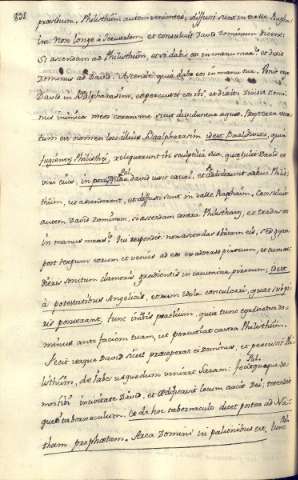 831
praesidium, Philisthiim autem venientes, diffusi sunt in valle Raphaim
non longe a Jerusalem et consuluit David Dominum dicens:
Si ascendam ad Philisthiim, et si dabis eos in manu mea? et dixit
Dominus ad David: Ascende, quia dabo eos in manu tua. Venit ergo
David in Baalpharasim, et percussit eos ibi, et dixit: divisit Domi-
nus inimicos meos coram me sicut dividuntur aquae. Propterea voca-
tum est nomen loci illius Baalpharasim idest
fugientes Philisthaei, reliquerunt ibi sculptilia sua, quae tulit David et
viri eius, David et addiderunt adhuc Philis-
thiim, ut ascenderent, et diffusi sunt in valle Raphaim. Consuluit
autem David Dominum, si ascendam contra Philisthaeos, et tradas eos
in manus meas? qui respondit non ascendas contra eos, sed gyra
post tergum eorum et venies ad eos ex adverso pirorum, et cum au-
dieris sonitum clamoris gradientis in cacumine pirorum, idest
à potestatibus Angelicis, idola conculcari, quae
tunc inibis praelium, quia tunc egredietur Do-
minus ante faciem tuam, ut percutiat castra Philisthiim.
Fecit itaque David sicut praeceperat ei Dominus, et percussit Phi-
listhiim, de Gabee usquedum venias
David, et aedificavit locum arcae Dei, tetendit-
que tabernaculum. de hoc tabernaculo dicit postea ad Na-
than prophetam. Arca Domini in pellibus est, tunc